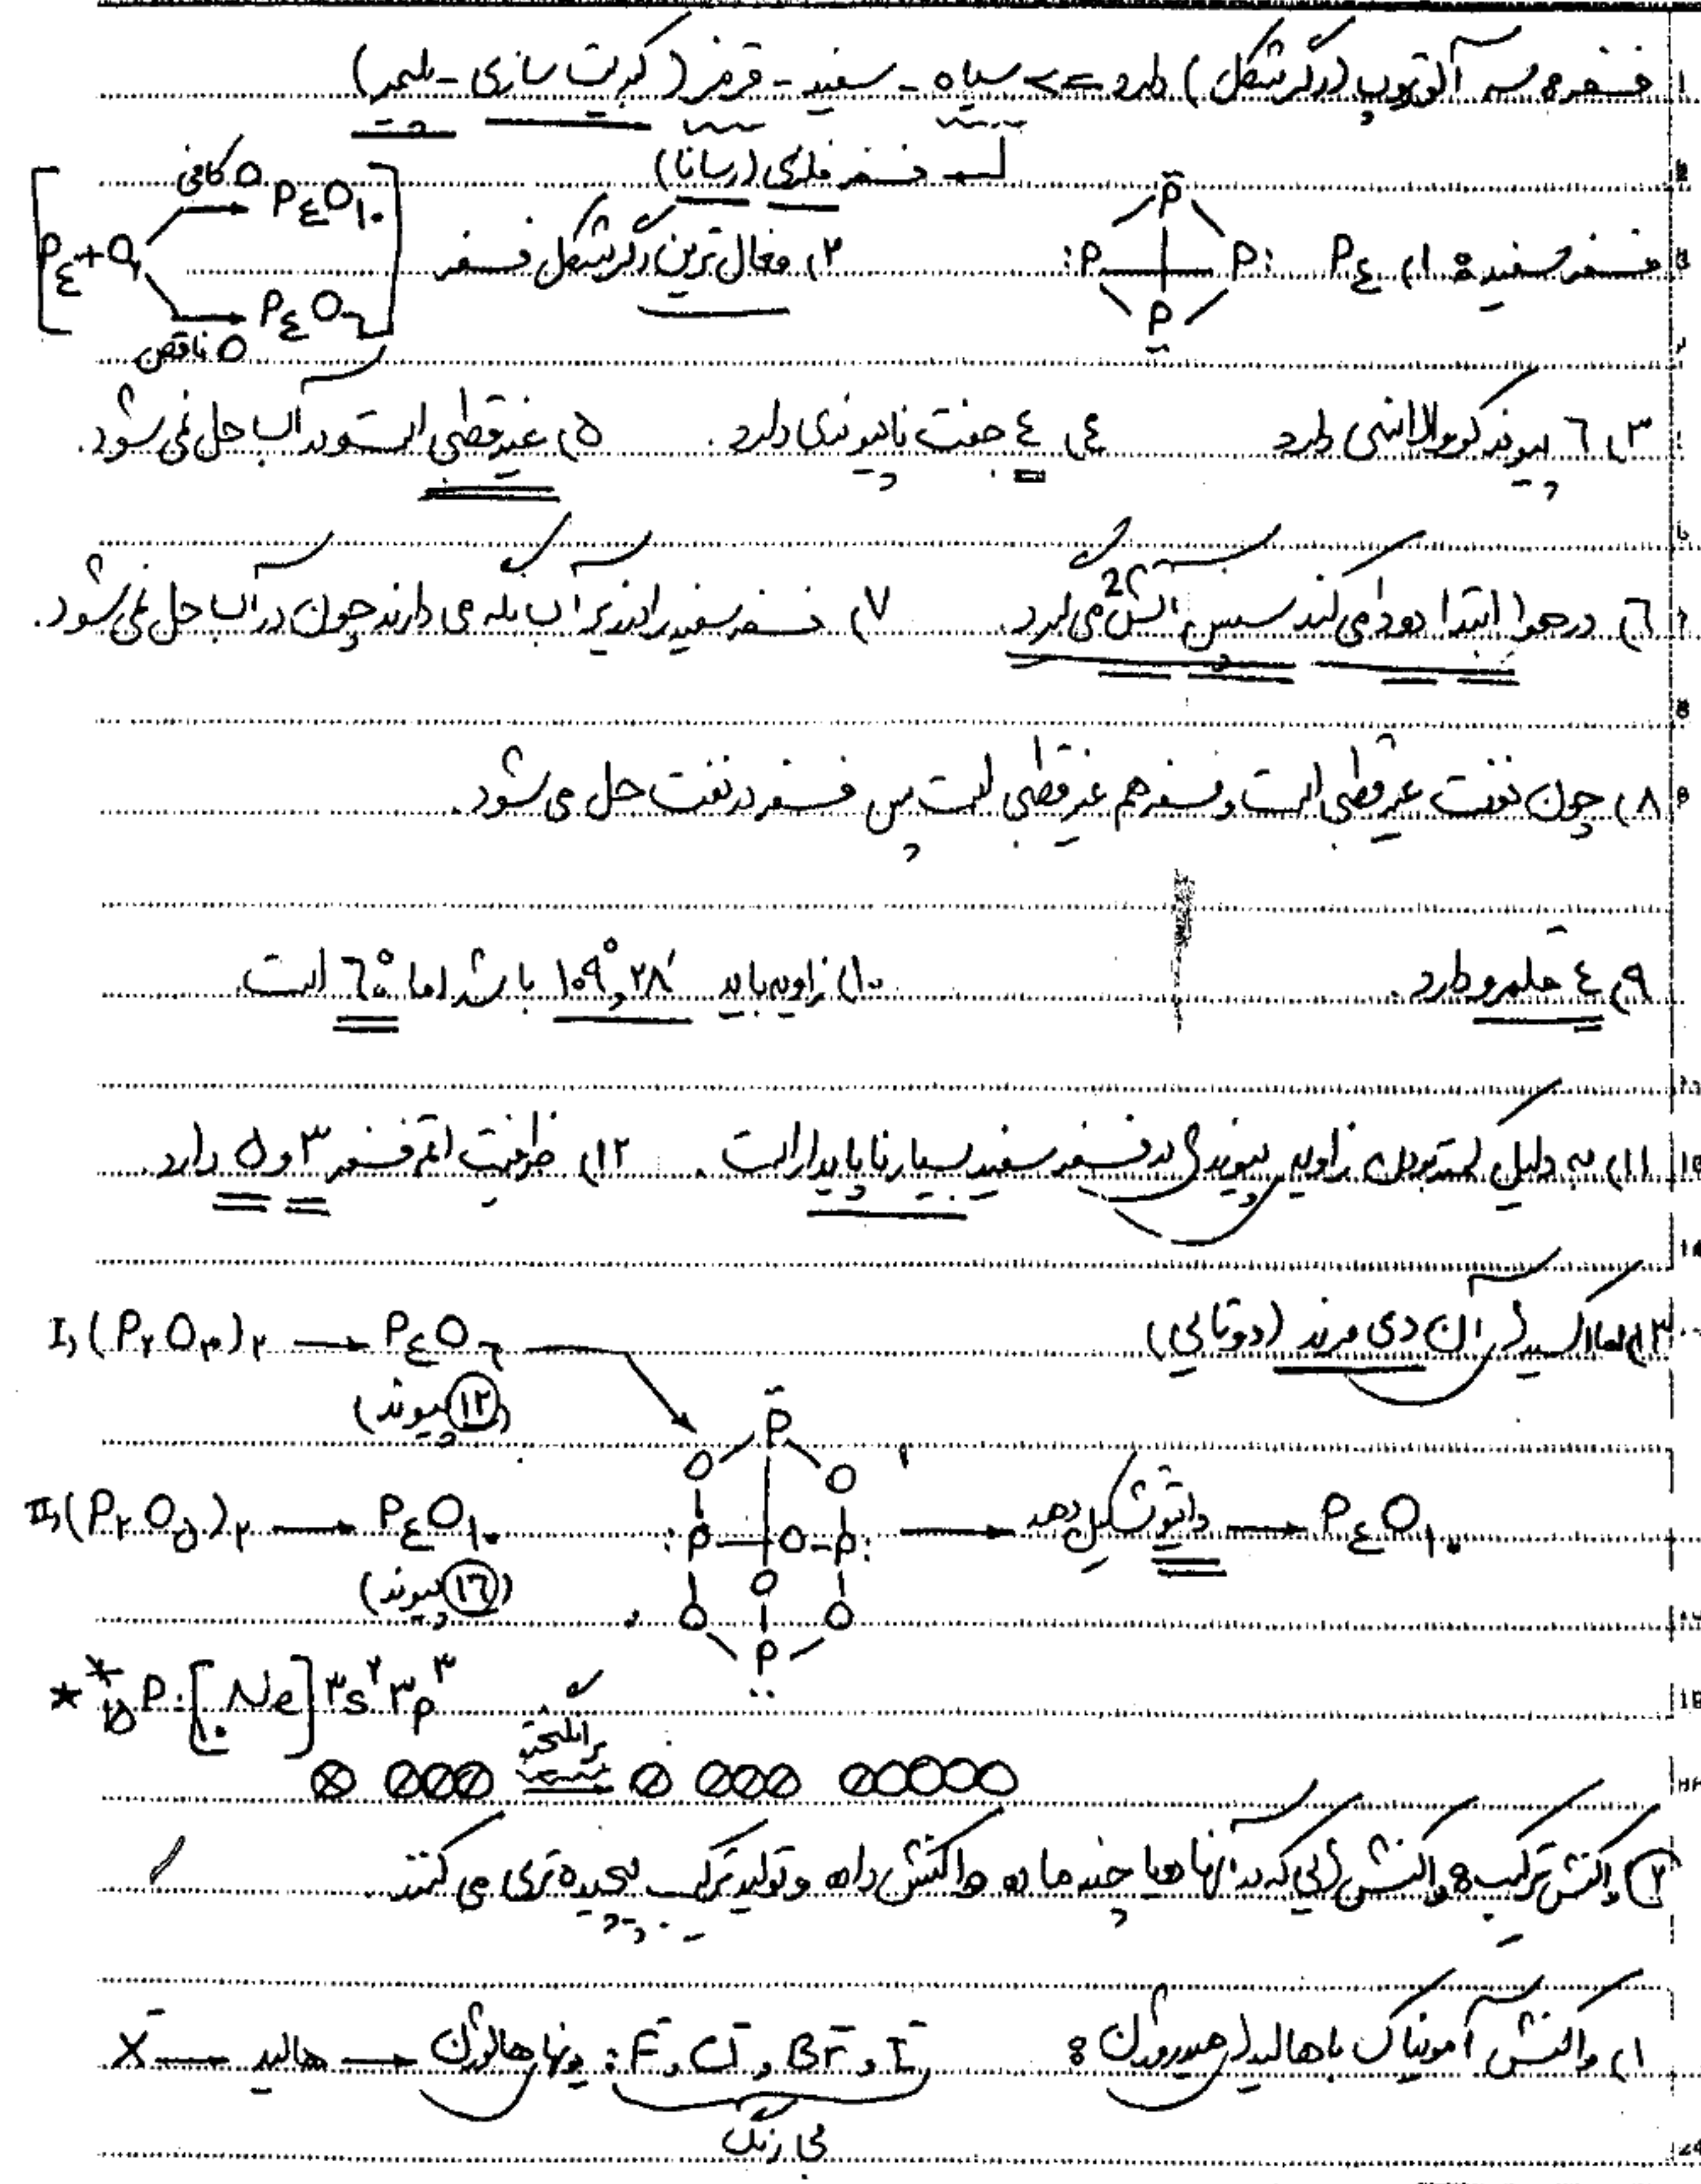 فسفر سه آلوتروپ (دگرشکل) دارد => سیاه - سفید - قرمز (کبریت سازی - پلیمر)
فسفر فلزی (رسانا)
فسفر سفید: ۱) P٤ ۲) فعال ترین دگرشکل فسفر
P P P P
P٤ + O٢ → P٤O١٠ O کافی
→ P٤O٦ O ناقص
۳) ٦ پیوند کووالانسی دارد ٤) ٤ جفت ناپیوندی دارد. ۵) غیرقطبی است و در آب حل نمی شود.
٦) در هوا ابتدا دود می کند سپس آتش می گیرد. ۷) فسفر سفید را در زیر آب نگه می دارند چون در آب حل نمی شود.
۸) چون نفت غیرقطبی است و فسفر هم غیرقطبی است پس فسفر در نفت حل می شود.
۹) ٤ هلمرو دارد. ۱۰) زاویه باید ۱۰۹°,۲۸′ باشد اما ٦۰° است
۱۱) به دلیل بسته بودن زاویه پیوندی در فسفر سفید بسیار ناپایدار است. ۱۲) ظرفیت اتم فسفر ۳ و ۵ دارد.
۱۳) اما اکسیدهای آن دی مرند (دوتایی)
I) (P٢O٣)٢ → P٤O٦
(۱۲ پیوند)
P
O O
II) (P٢O٥)٢ → P٤O١٠ :P — O - P: → داتیو تشکیل دهد → P٤O١٠
(۱٦ پیوند) O
O O
P
** ١٥P: [١٠Ne] ٣s٢ ٣p٣
برانگیخته
۲) واکنش ترکیب: واکنش هایی که در آنها دو یا چند ماده واکنش داده و تولید ترکیب پیچیده تری می کنند.
۱) واکنش آمونیاک با هالید هیدروژن: F⁻, Cl⁻, Br⁻, I⁻ : یونهای هالوژن → هالید → X⁻
بی رنگ